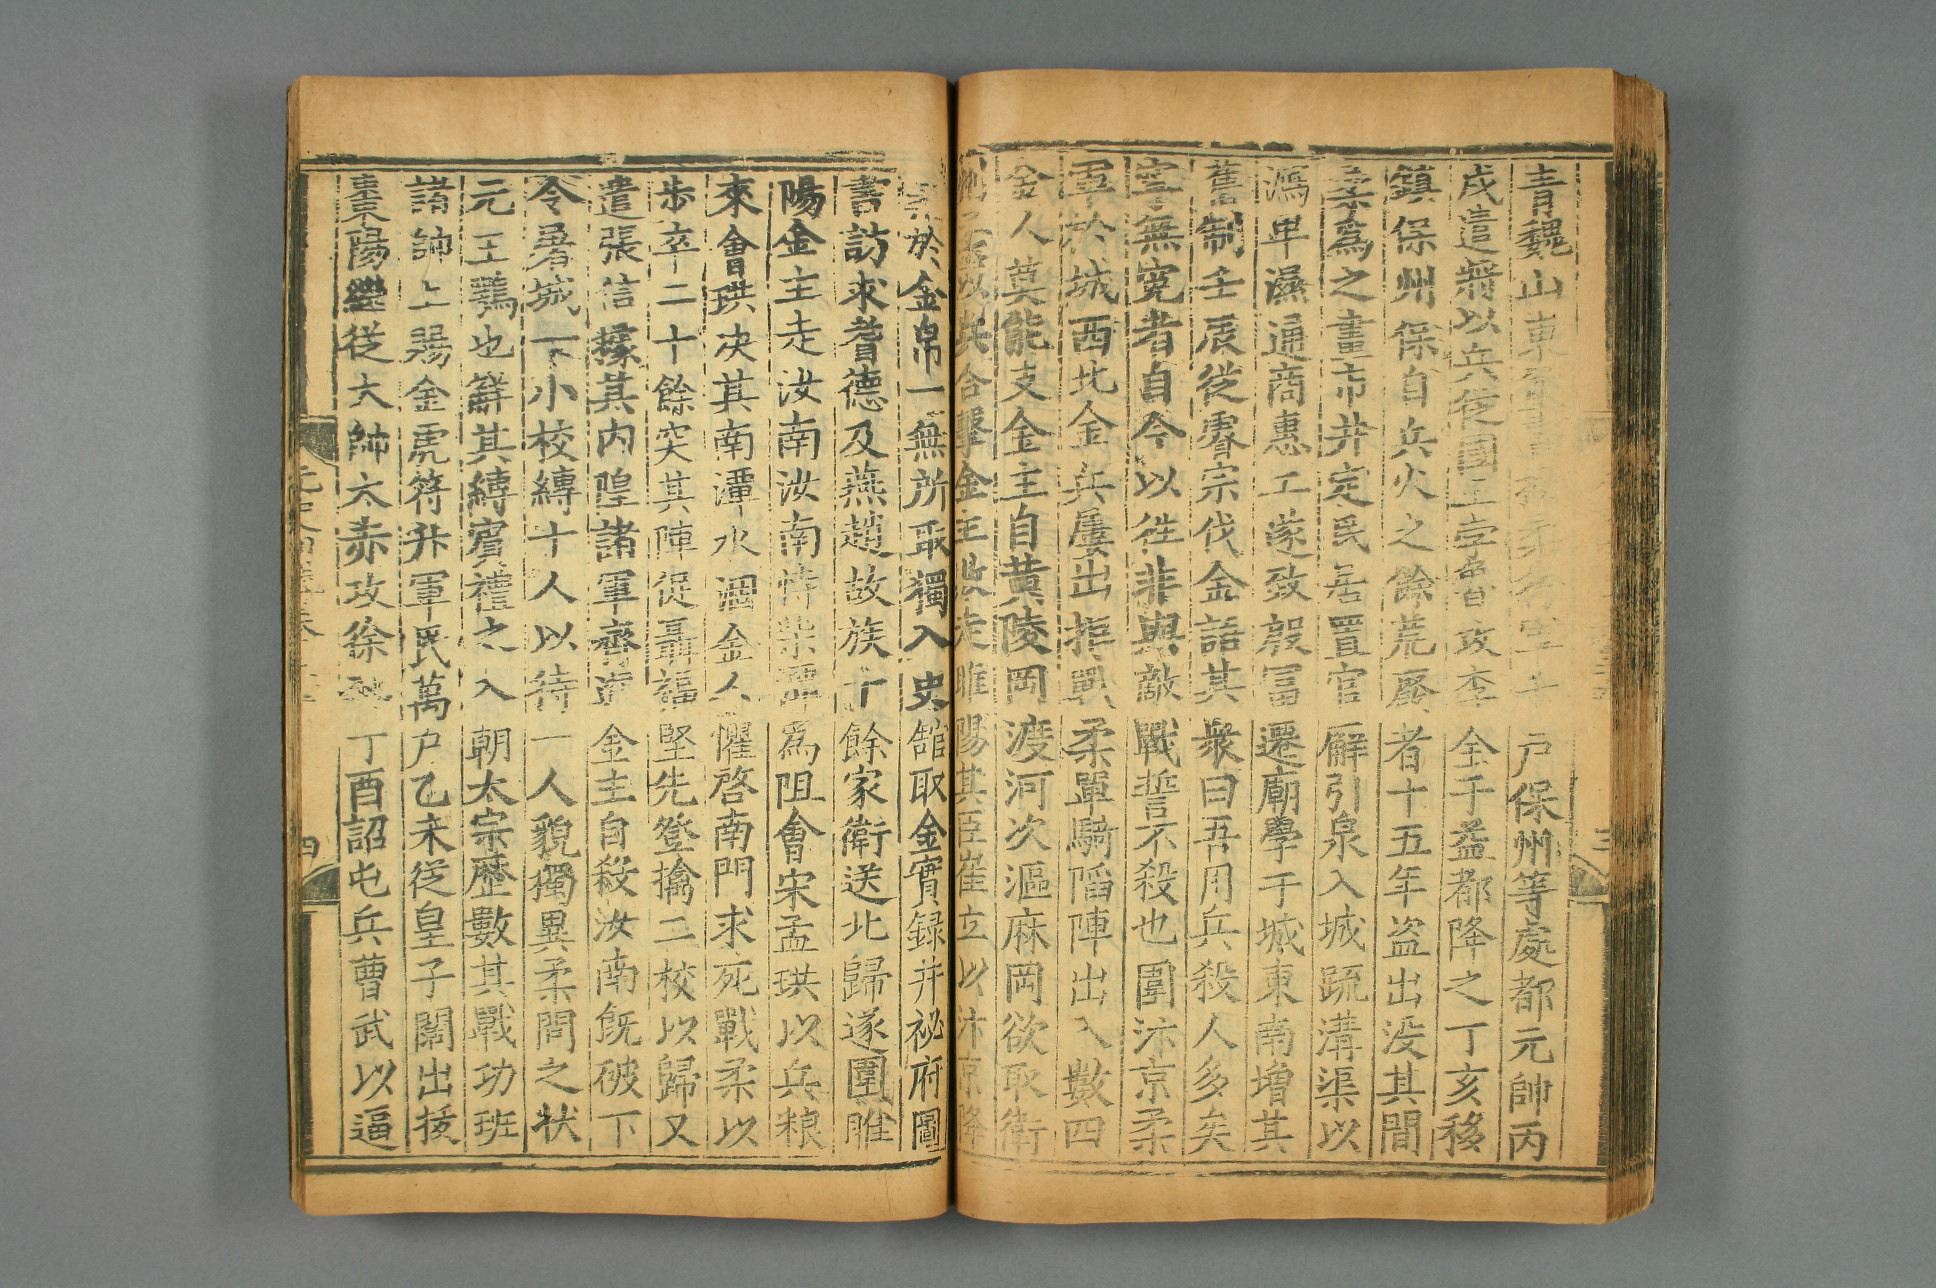 青魏山東 戶保州等處都元帥丙
戌遣將以兵從國王孛魯攻李全于益都降之丁亥移
鎮保州保自兵火之餘荒廢者十五年盜出没其間
柔為之畫市井定民居置官廨引泉入城疏溝渠以
瀉卑濕通商惠工遂致殷冨遷廟學于城東南増其
舊制壬辰從睿宗伐金語其衆曰吾用兵殺人多矣
寧無寃者自今以徃非與敵戰誓不殺也圍汴京柔
軍於城西北金兵屢出拒戰柔單騎䧟陣出入數四
金人莫能支金主自黄陵岡渡河次漚麻岡欲取衛
州柔以兵合擊金主敗走睢陽其臣崔立以汴京降
柔於金帛一無所取獨入史舘取金實録并祕府圖
書訪求耆德及燕趙故族十餘家衛送北歸遂圍睢
陽金主走汝南汝南恃柴潭為阻會宋孟珙以兵粮
來會珙决其南潭水涸金人懼啓南門求死戰柔以
步卒二十餘突其陣促聶福堅先登擒二校以歸又
遣張信據其内隍諸軍齊進金主自殺汝南旣破下
令屠城一小校縛十人以待一人貌獨異柔問之状
元王鶚也觧其縛賓禮之入朝太宗歴數其戰功班
諸帥上賜金虎符升軍民萬户乙未從皇子闊出抜
棗陽繼從大帥太赤攻徐邳丁酉詔屯兵曹武以逼
四